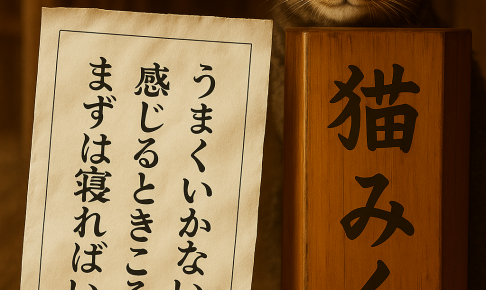 うまくいかない
感じるときこそ
まずは寝ればい
猫みく